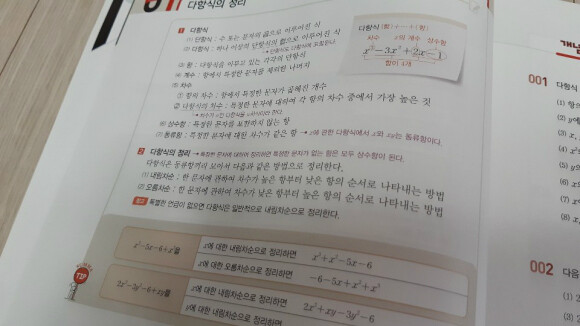 다항식의 정리
1 다항식
(1) 단항식 : 수 또는 문자의 곱으로 이루어진 식
(2) 다항식 : 하나 이상의 단항식의 합으로 이루어진 식
→ 단항식도 다항식에 포함된다.
(3) 항 : 다항식을 이루고 있는 각각의 단항식
(4) 계수 : 항에서 특정한 문자를 제외한 나머지
(5) 차수
① 항의 차수 : 항에서 특정한 문자가 곱해진 개수
② 다항식의 차수 : 특정한 문자에 대하여 각 항의 차수 중에서 가장 높은 것
(6) 상수항 : 특정한 문자를 포함하지 않는 항
(7) 동류항 : 특정한 문자에 대한 차수가 같은 항 → x에 관한 다항식에서 x와 xa는 동류항이다.
다항식 (합)+…+(항)
차수 x의 계수 상수항
x³-3x²+2x-1
항이 4개
2 다항식의 정리 → 특정한 문자에 대하여 정리하면 특정한 문자가 없는 항은 모두 상수항이 된다.
다항식은 동류항끼리 모아서 다음과 같은 방법으로 정리한다.
(1) 내림차순 : 한 문자에 관하여 차수가 높은 항부터 낮은 항의 순서로 나타내는 방법
(2) 오름차순 : 한 문자에 관하여 차수가 낮은 항부터 높은 항의 순서로 나타내는 방법
참고 특별한 언급이 없으면 다항식은 일반적으로 내림차순으로 정리한다.
x²-5x-6+x³을
x에 대한 내림차순으로 정리하면 x³+x²-5x-6
x에 대한 오름차순으로 정리하면 -6-5x+x²+x³
TIP
2x²-3y²-6+xy를
x에 대한 내림차순으로 정리하면 2x²+xy-3y²-6
y에 대한 내림차순으로 정리하면
001 다항식
(1) 항의
(2) y에
(3) x,
(4) x
(5) y
(6) x
(7)
(8) x,
002 다음
(1) 2